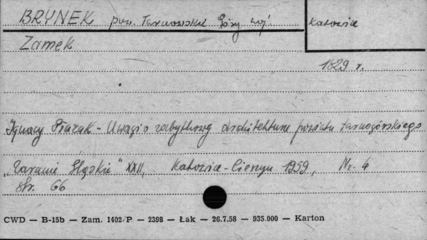 BRYNEK pow. Tarnowskie Góry woj. Katowice
Zamek
1829 r.
Ignacy Płazak - Uwagi o zabytkowej architekturze powiatu tarnogórskiego
"Zaranie Śląskie" XXII, Katowice-Cieszyn 1959, Nr. 4
Str. 66
CWD — B-15b — Zam. 1402/P — 2398 — Łak — 26.7.58 — 935.000 — Karton